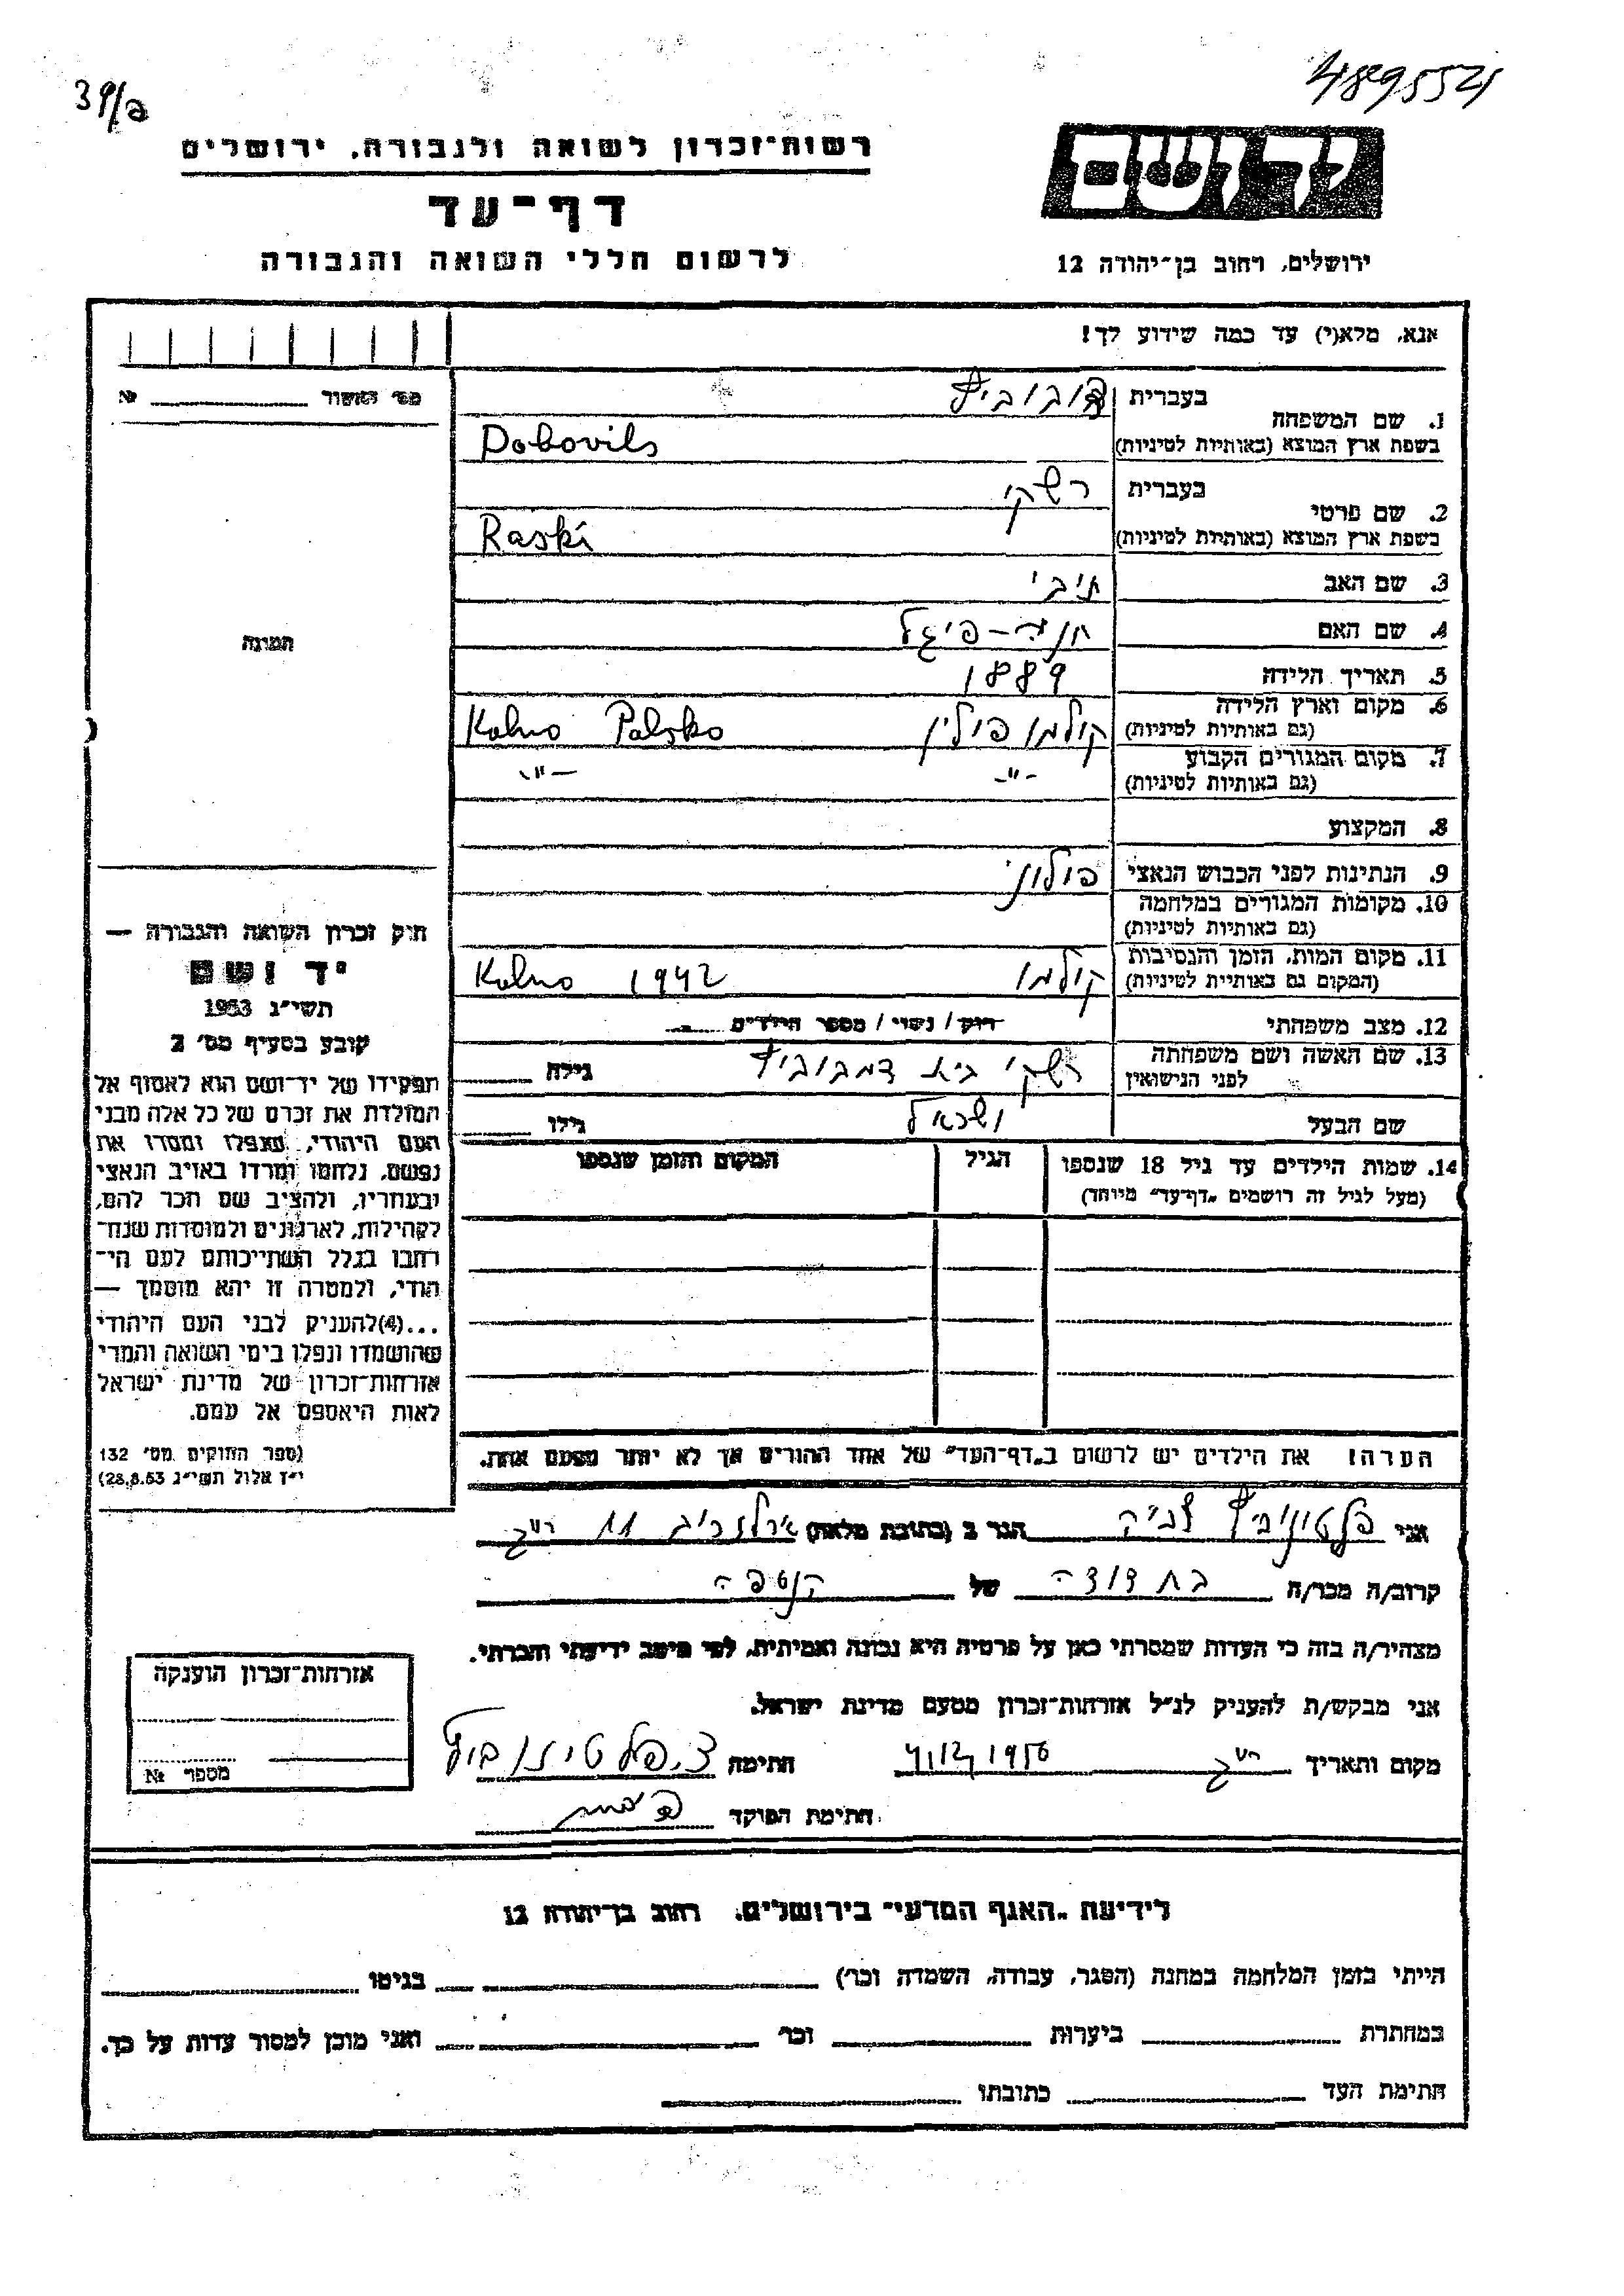 4895521
39/a
רשות־זכרון לשואה ולגבורה, ירושלים
דף־עד
לרשום חללי השואה והגבורה
יד ושם
ירושלים, רחוב בן־יהודה 12
אנא, מלא(י) עד כמה שידוע לך!
מס' האשור № ______
1. שם המשפחה
בעברית דובוביץ
בשפת ארץ המוצא (באותיות לטיניות) Dobovils
2. שם פרטי
בעברית רשקי
בשפת ארץ המוצא (באותיות לטיניות) Raski
3. שם האב
4. שם האם חנה-פיגל
5. תאריך הלידה 1889
6. מקום וארץ הלידה (גם באותיות לטיניות) קולמו פולין Kolno Polsko
7. מקום המגורים הקבוע (גם באותיות לטיניות) -"- -"-
8. המקצוע
9. הנתינות לפני הכבוש הנאצי פולוני
10. מקומות המגורים במלחמה (גם באותיות לטיניות)
11. מקום המות, הזמן והנסיבות (המקום גם באותיית לטיניות) קולמו 1942 Kolno
12. מצב משפחתי רוק / נשוי / מספר הילדים
13. שם האשה ושם משפחתה לפני הנישואין רשקי גילה
שם הבעל ישראל גילו
14. שמות הילדים עד גיל 18 שנספו (מעל לגיל זה רושמים „דף־עד" מיוחד)
הגיל
המקום והזמן שנספו
הערה! את הילדים יש לרשום ב„דף־העד" של אחד ההורים אך לא יותר מפעם אחת.
תמונה
חוק זכרון השואה והגבורה —
יד ושם
תשי״ג 1953
קובע בסעיף מס' 2
תפקידו של יד־ושם הוא לאסוף אל
המולדת את זכרם של כל אלה מבני
העם היהודי, שנפלו ומסרו את
נפשם, נלחמו ומרדו באויב הנאצי
ובעוזריו, ולהציב שם וזכר להם,
לקהילות, לארגונים ולמוסדות שנח־
רחבו בגלל השתייכותם לעם הי־
הודי, ולמטרה זו יהא מוסמך —
...(4)להעניק לבני העם היהודי
שהושמדו ונפלו בימי השואה והמרי
אזרחות־זכרון של מדינת ישראל
לאות היאספם אל עמם.
(ספר החוקים מס' 132
י״ז אלול תשי״ג 28.8.53)
אני פלטינוביץ צביה הגר ב (כתובת מלאה) ארלוזרוב 11 ר"ג
קרוב/ה מכר/ה בת דודה של הנספה
מצהיר/ה בזה כי העדות שמסרתי כאן על פרטיה היא נכונה ואמיתית, לפי מיטב ידיעתי והכרתי.
אני מבקש/ת להעניק לנ״ל אזרחות־זכרון מטעם מדינת ישראל.
מקום ותאריך ר"ג 1956 חתימה צ. פלטינוביץ
חתימת הפוקד
אזרחות־זכרון הוענקה
מספר №
לידיעת „האגף המדעי" בירושלים, רחוב בן־יהודה 12
הייתי בזמן המלחמה במחנה (הסגר, עבודה, השמדה וכר') ______ בגיטו ______
במחתרת ______ ביערות ______ וכר' ______ ואני מוכן למסור עדות על כך.
חתימת העד ______ כתובתו ______